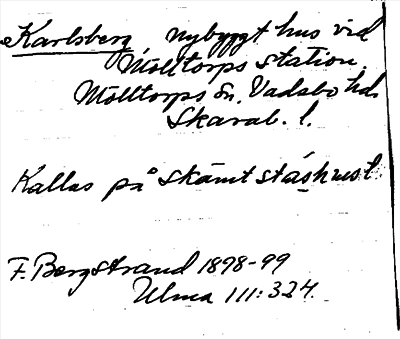 Karlsberg nybyggt hus vid
Mölltorps station.
Mölltorps sn. Vadsbo hd.
Skarab. l.
Kallas på skämt ståshuset.
F. Bergstrand 1898-99
Ulma 111:324.